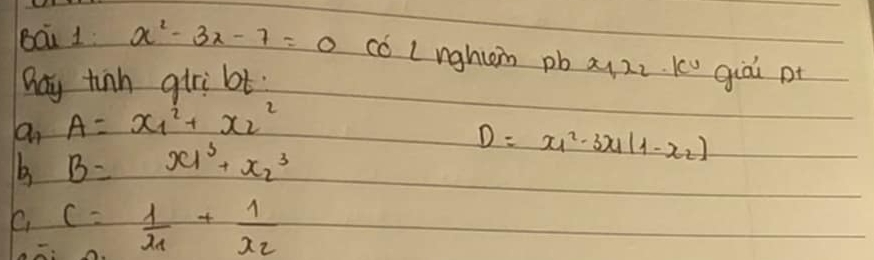 Bài 1: x² - 3x - 7 = 0 có 2 nghiệm pb x1, x2. ko giải pt
hãy tính gtrị bt:
a, A = x1² + x2²
D = x1² - 3x1(1 - x2)
b, B = x1³ + x2³
c, C = 1/x1 + 1/x2